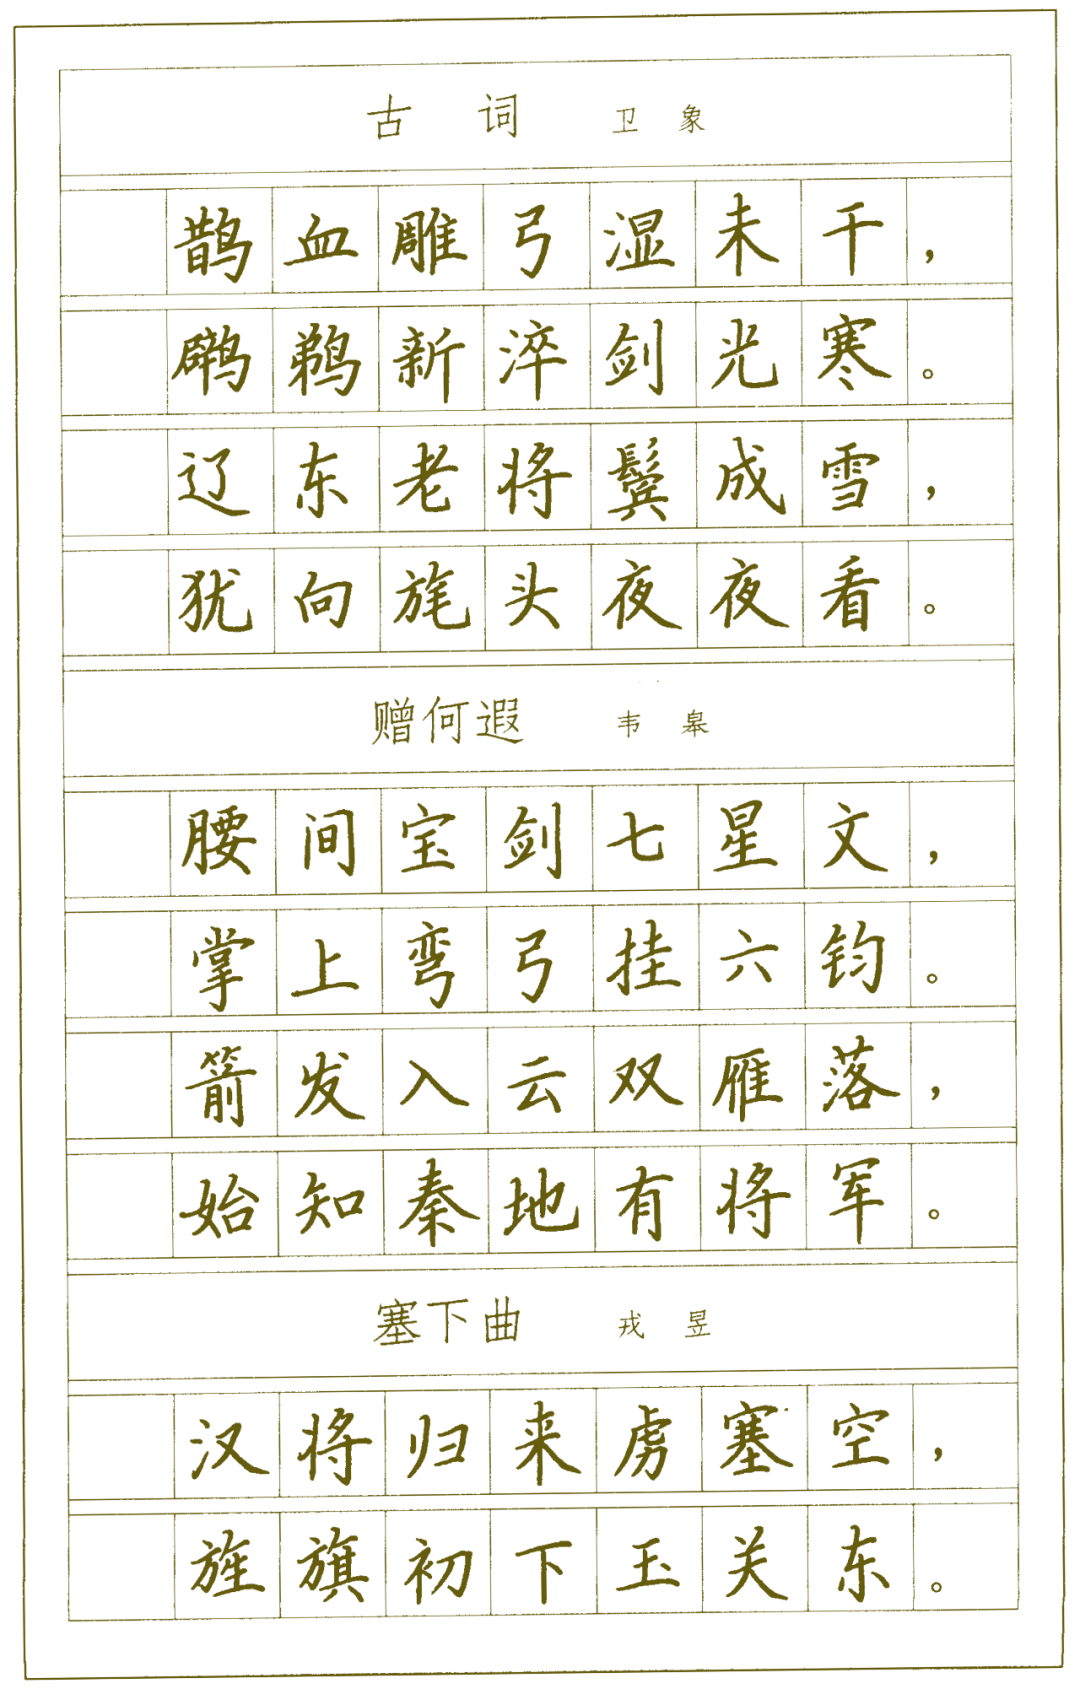 古词 卫象
鹊血雕弓湿未干，
䴙鹈新淬剑光寒。
辽东老将鬓成雪，
犹向旄头夜夜看。
赠何遐 韦皋
腰间宝剑七星文，
掌上弯弓挂六钧。
箭发入云双雁落，
始知秦地有将军。
塞下曲 戎昱
汉将归来虏塞空，
旌旗初下玉关东。